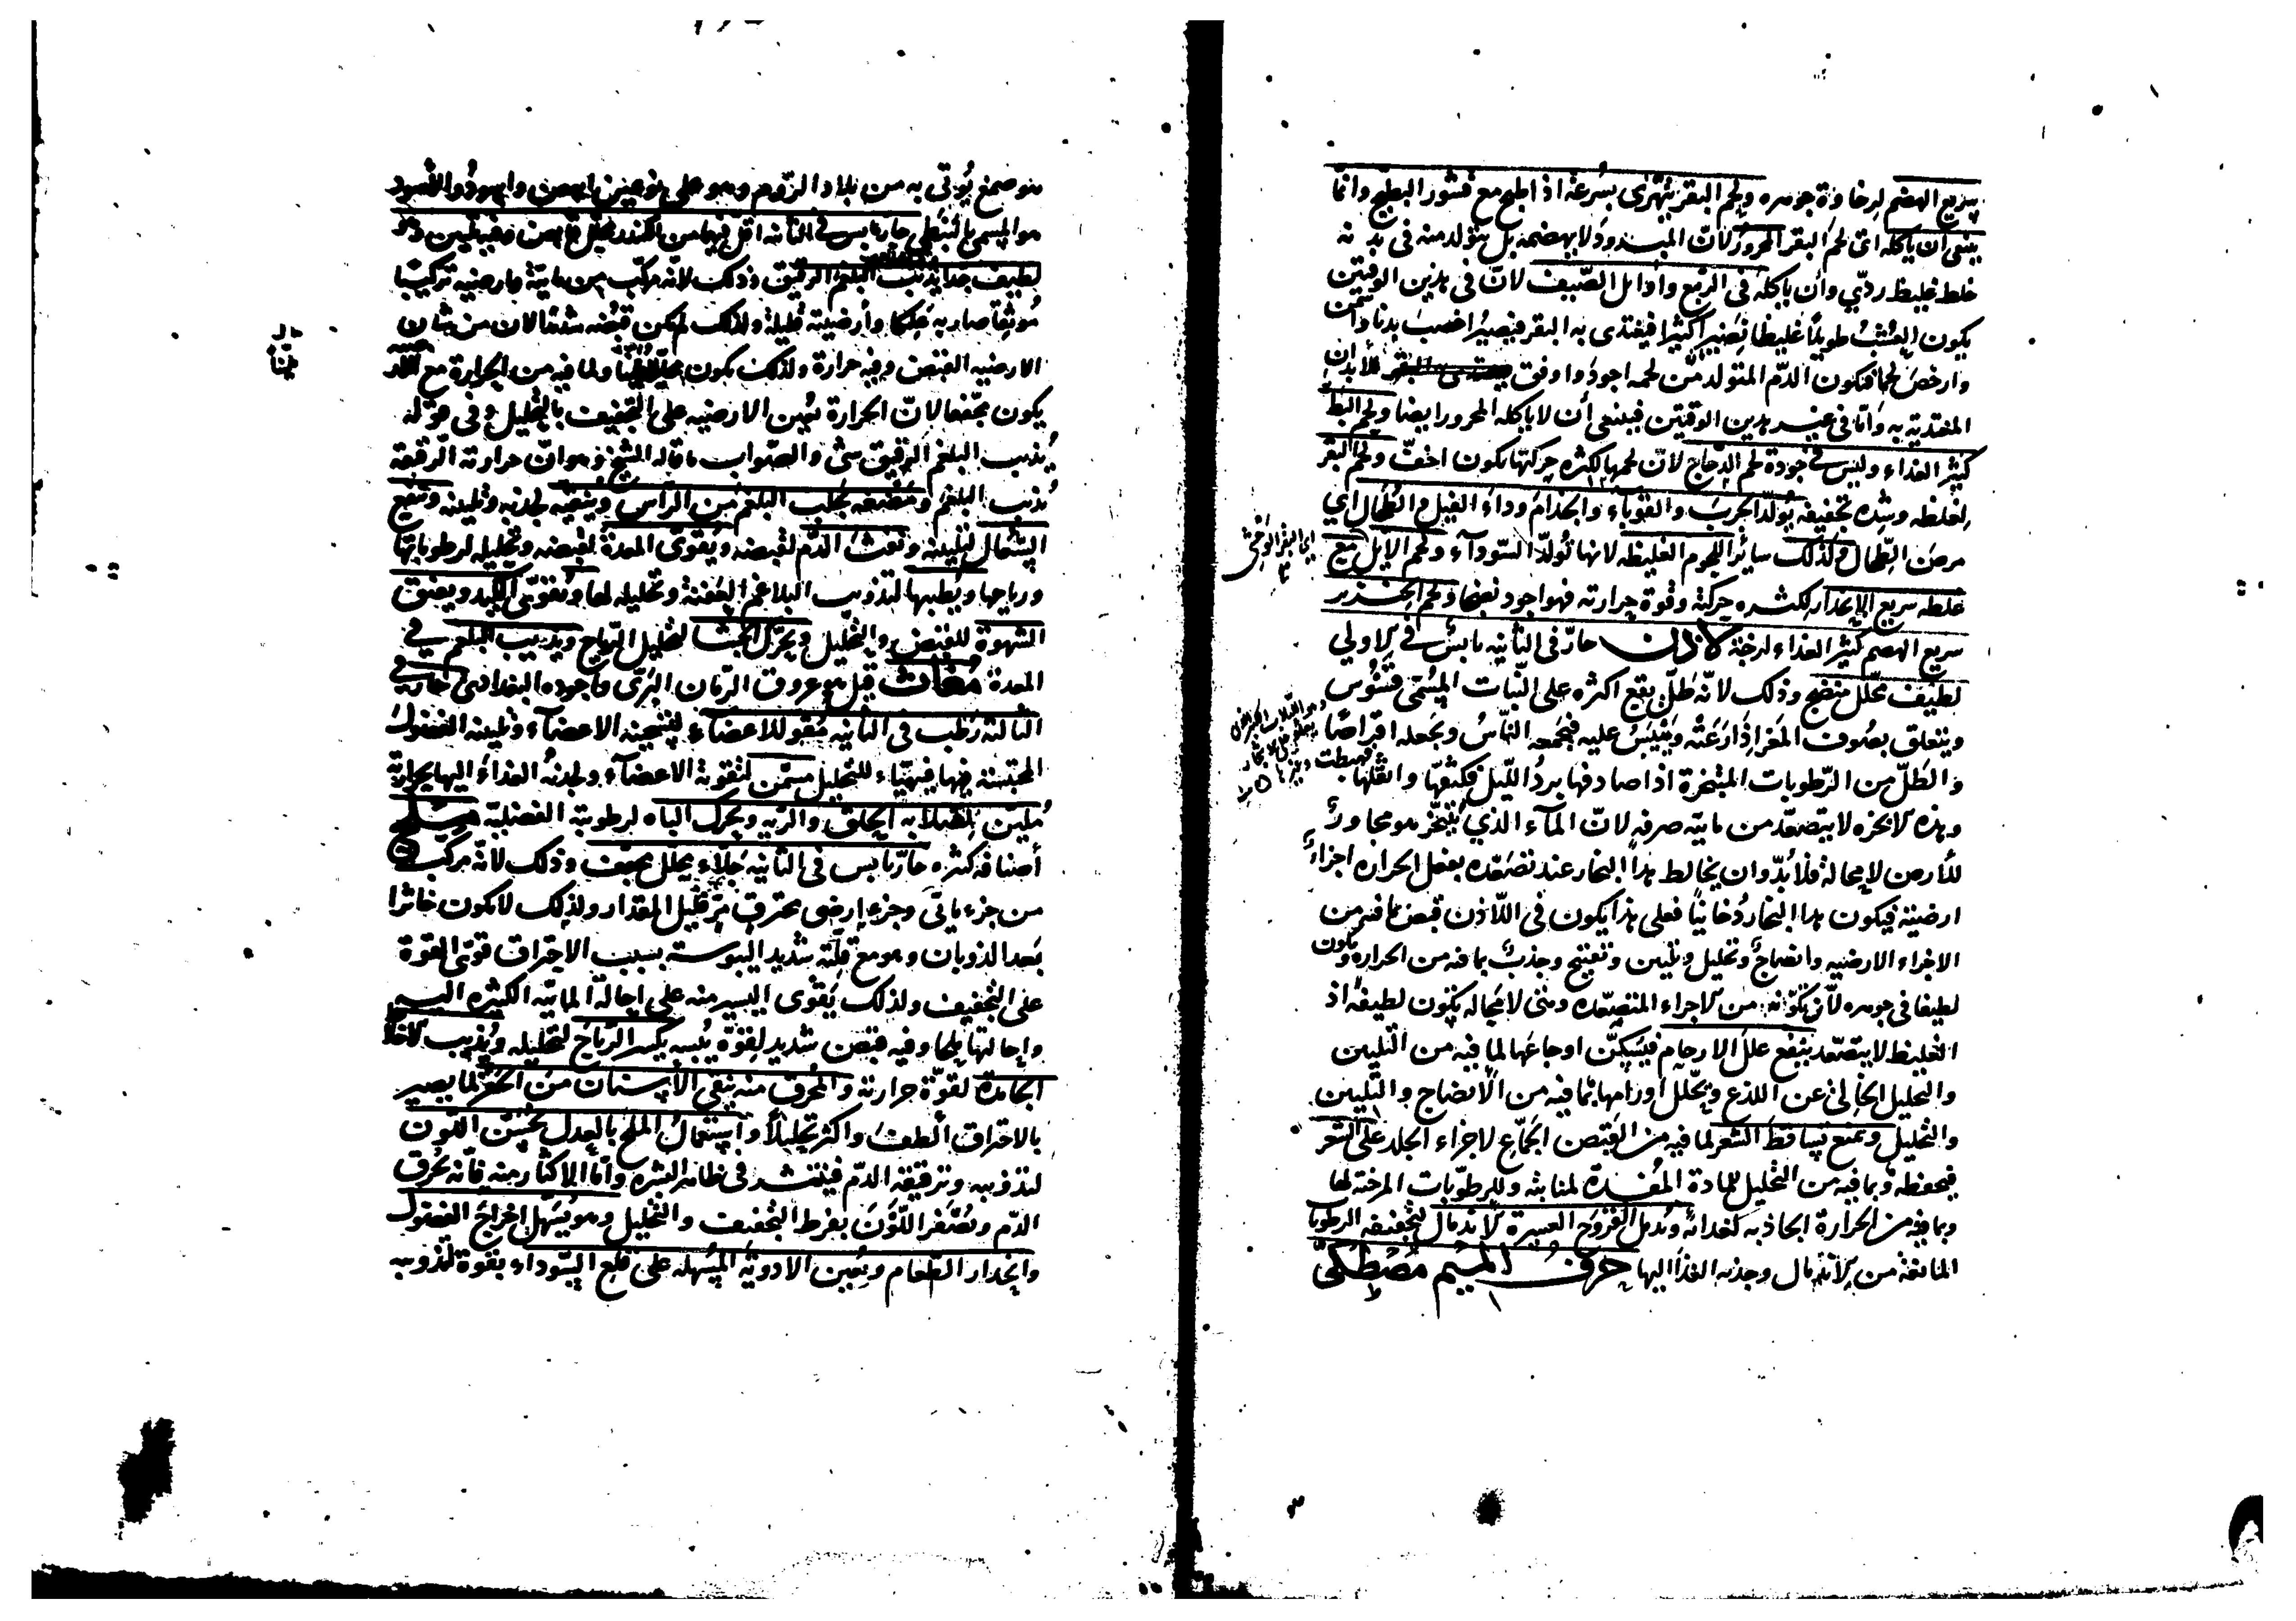 سريع الهضم لرخاوة جوهره ولحم البقر يتهرى بسرعة اذا طبخ مع قشور البطيخ وانما
ينبغى ان ياكله اى لحم البقر المحرور لان المبرود لا يهضمه بل يتولد منه فى بدنه
خلط غليظ ردى وأن ياكله فى الربع وأوائل الصيف لان فى هذين الوقتين
يكون العشب طويلا غليظا نضيرا كثيرا فيغتذى به البقر فيصير اخصب بدنا واسمن
وارخص لحما فيكون الدم المتولد من لحمه اجود واوفق للأبدان
المغتذية به وأما فى غير هذين الوقتين فينبغى أن لا ياكله المحرور ايضا ولحم البط
كثير الغذاء وليس فى جودة لحم الدجاج لان لحمها لكثرة حركتها يكون اخف ولحم البقر
لغلظه وشدة تجفيفه يولد الجرب والقوباء والجذام وداء الفيل والطحال اي
مرض الطحال وكذلك سائر اللحوم الغليظه لانها تولد السوداء ولحم الايل مع
غلظه سريع الانحدار لكثره حركته وقوة حرارته فهو اجود نضجا ولحم الخنزير
سريع الهضم كثير الغذاء لزجة لاذن حار فى الثانيه يابس فى الاولي
لطيف محلل منضج وذلك لانه طل يقع اكثره على النبات المسمى قستوس
ويتعلق بصوف المعز اذا رعته ويتيبس عليه فيجمعه الناس ويجعله اقراصا
والطل من الرطوبات المتبخرة اذا صادفها برد الليل فكثفها واثقلها فهبطت
وهذه الابخره لا يتصعد من مايته صرفه لان الماء الذي يتبخر هو مجاور
للأرض لا محالة فلا بد وان يخالط هذا البخار عند تصعده بفعل الحراره اجزاء
ارضية فيكون هذا البخار دخانيا فعلى هذا يكون فى اللاذن قبض بما فيه من
الاجزاء الارضيه وانضاج وتحليل وتليين وتفتيح وجذب بما فيه من الحراره ويكون
لطيفا فى جوهره لان تكونه من الاجزاء المتصعده ومثل لا محاله يكون لطيفه اذ
الغليظ لا يتصعد ينفع علل الارحام فيسكن اوجاعها لما فيه من التليين
والتحليل الخالى عن اللذع ويحلل اورامها بما فيه من الانضاج والتليين
والتحليل ويمنع تساقط الشعر لما فيه من القبض الجماع لاجزاء الجلد على الشعر
فيحفظه وبما فيه من التحليل للمادة المفسدة لمنابته وللرطوبات المرخية لها
وبما فيه من الحرارة الجاذبه لغدائه ويدمل القروح العسرة الاندمال لتجفيفه الرطوبات
المانعة من الاندمال وجذبه الغذاء اليها حرف الميم مصطكى
اى البقر الوحشى
هو صمغ يؤتى به من بلاد الروم وهو على نوعين ابيض واسود والاسود
هو المسمى بالنبطى حار يابس فى الثانيه اقل فيهما من الكندر محلل قابض
لطيف جدا يذيب البلغم الرقيق وذلك لانه مركب من مائية وارضيه تركيبا
موثقا صار به علكا وأرضيته قليلة ولذلك لم يكن قبضه شديدا لان من شان
الارضيه القبض وفيه حرارة ولذلك يكون محللا ملينا ولما فيه من الحرارة مع الارضيه
يكون مجففا لان الحرارة تعين الارضيه على التجفيف بالتحليل وفى قوله
يذيب البلغم الرقيق شئ والصواب ما قاله الشيخ وهو ان حرارته الرقيقة
تذيب البلغم ومضغه يجلب البلغم من الراس وينقيه لجذبه وتليينه وينفع
السعال لتليينه ونفث الدم لقبضه ويقوى المعدة لقبضه وتحليله لرطوباتها
ورياحها ويطيبها لتذويب البلاغم العفنة وتحليله لها ويقوى الكبد ويفتق
الشهوة للقبض والتحليل ويحرك الجشا لتحليل الرياح ويذيب البلغم فى
المعدة مغاث قيل هو عروق الرمان البرى واجوده البغدادى حار فى
الثالثة رطب فى الثانيه مقو للاعضاء لتسخينه الاعضاء وتليينه الفضول
المحتبسة فيها فيهياء للتحليل مسمن لتقوية الاعضاء وجذبه الغذاء اليها بحرارته
ملين لصلابه الحلق والريه ويحرك الباه لرطوبته الفضلية ملح
أصنافه كثره حار يابس فى الثانيه جلاء محلل مجفف وذلك لانه مركب
من جزء مائى وجزء ارضى محترق مر قليل المقدار ولذلك لا يكون خاثرا
بعد الذوبان وهو مع قلته شديد اليبوسة بسبب الاحتراق قوى القوة
على التجفيف ولذلك يقوى اليسير منه على احالة المائيه الكثيره اليه
واحالتها ملحا وفيه قبض شديد لقوة يبسه يكسر الرياح لتحليله ويذيب الاخلاط
الجامدة لقوة حرارته والمحرق منه ينقى الاسنان من الحفر لما يصير
بالاحتراق ألطف واكثر تحليلا واستعمال الملح بالعدل يحسن اللون
لتذويبه وترقيقه الدم فينتشر فى ظاهر البشره واما الاكثار منه فانه يحرق
الدم ويصفر اللون بفرط التجفيف والتحليل وهو يسهل اخراج الفضول
وانحدار الطعام ويعين الادوية المسهله على قلع السوداء بقوة تذويبه